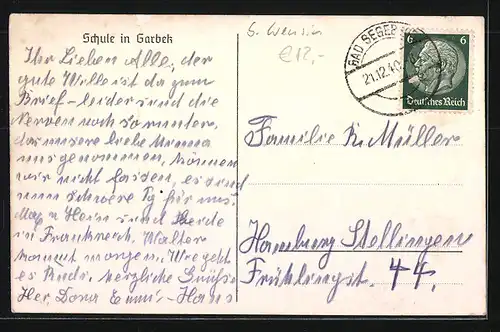 Schule in Garbek
Ihr Lieben Alle, der
gute Wille ist da zum
Brief - leider sind die
Nerven noch so runter,
das unsere liebe Mama
uns genommen, können
wir nicht fassen, es sind
nun schwere Tg für uns.
Hein und
in Frankreich, Walter
kommt morgen, Wie geht
es Rudi, herzliche Grüße
Dora Emmi - Hans
€12,-
BAD SEGEB
21.12.40
6 6
Deutsches Reich
Familie R. Müller
Hamburg Stellingen
Frühlingst. 44.